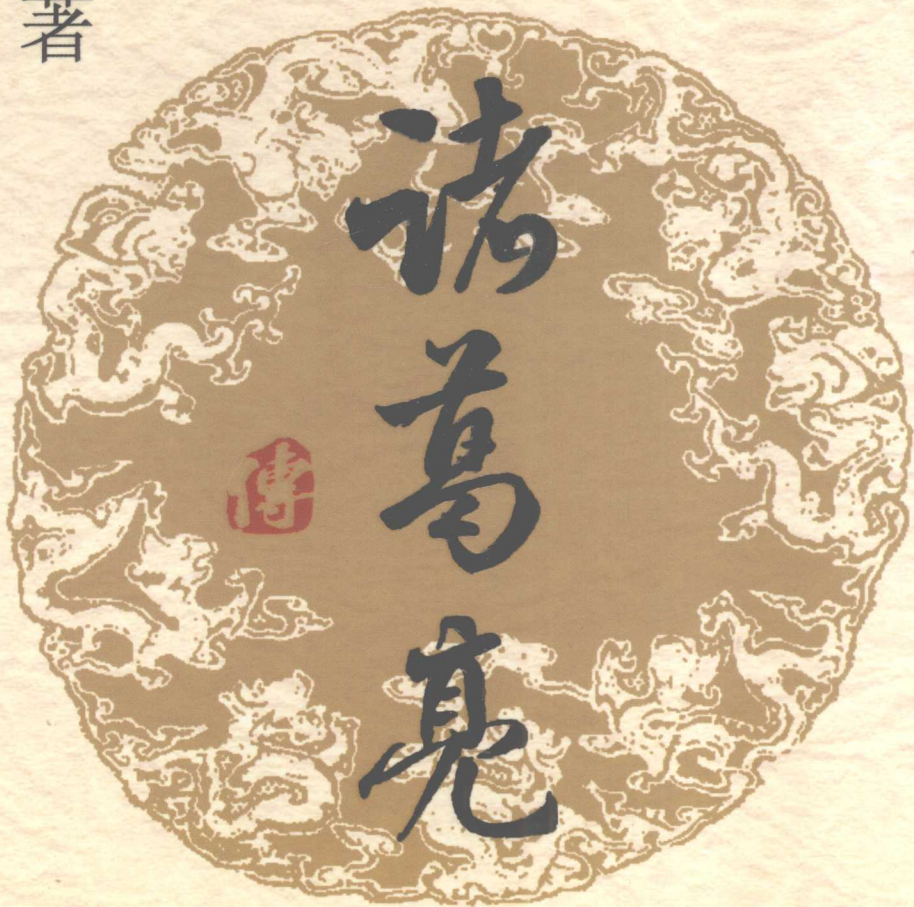 著
诸葛亮
傅